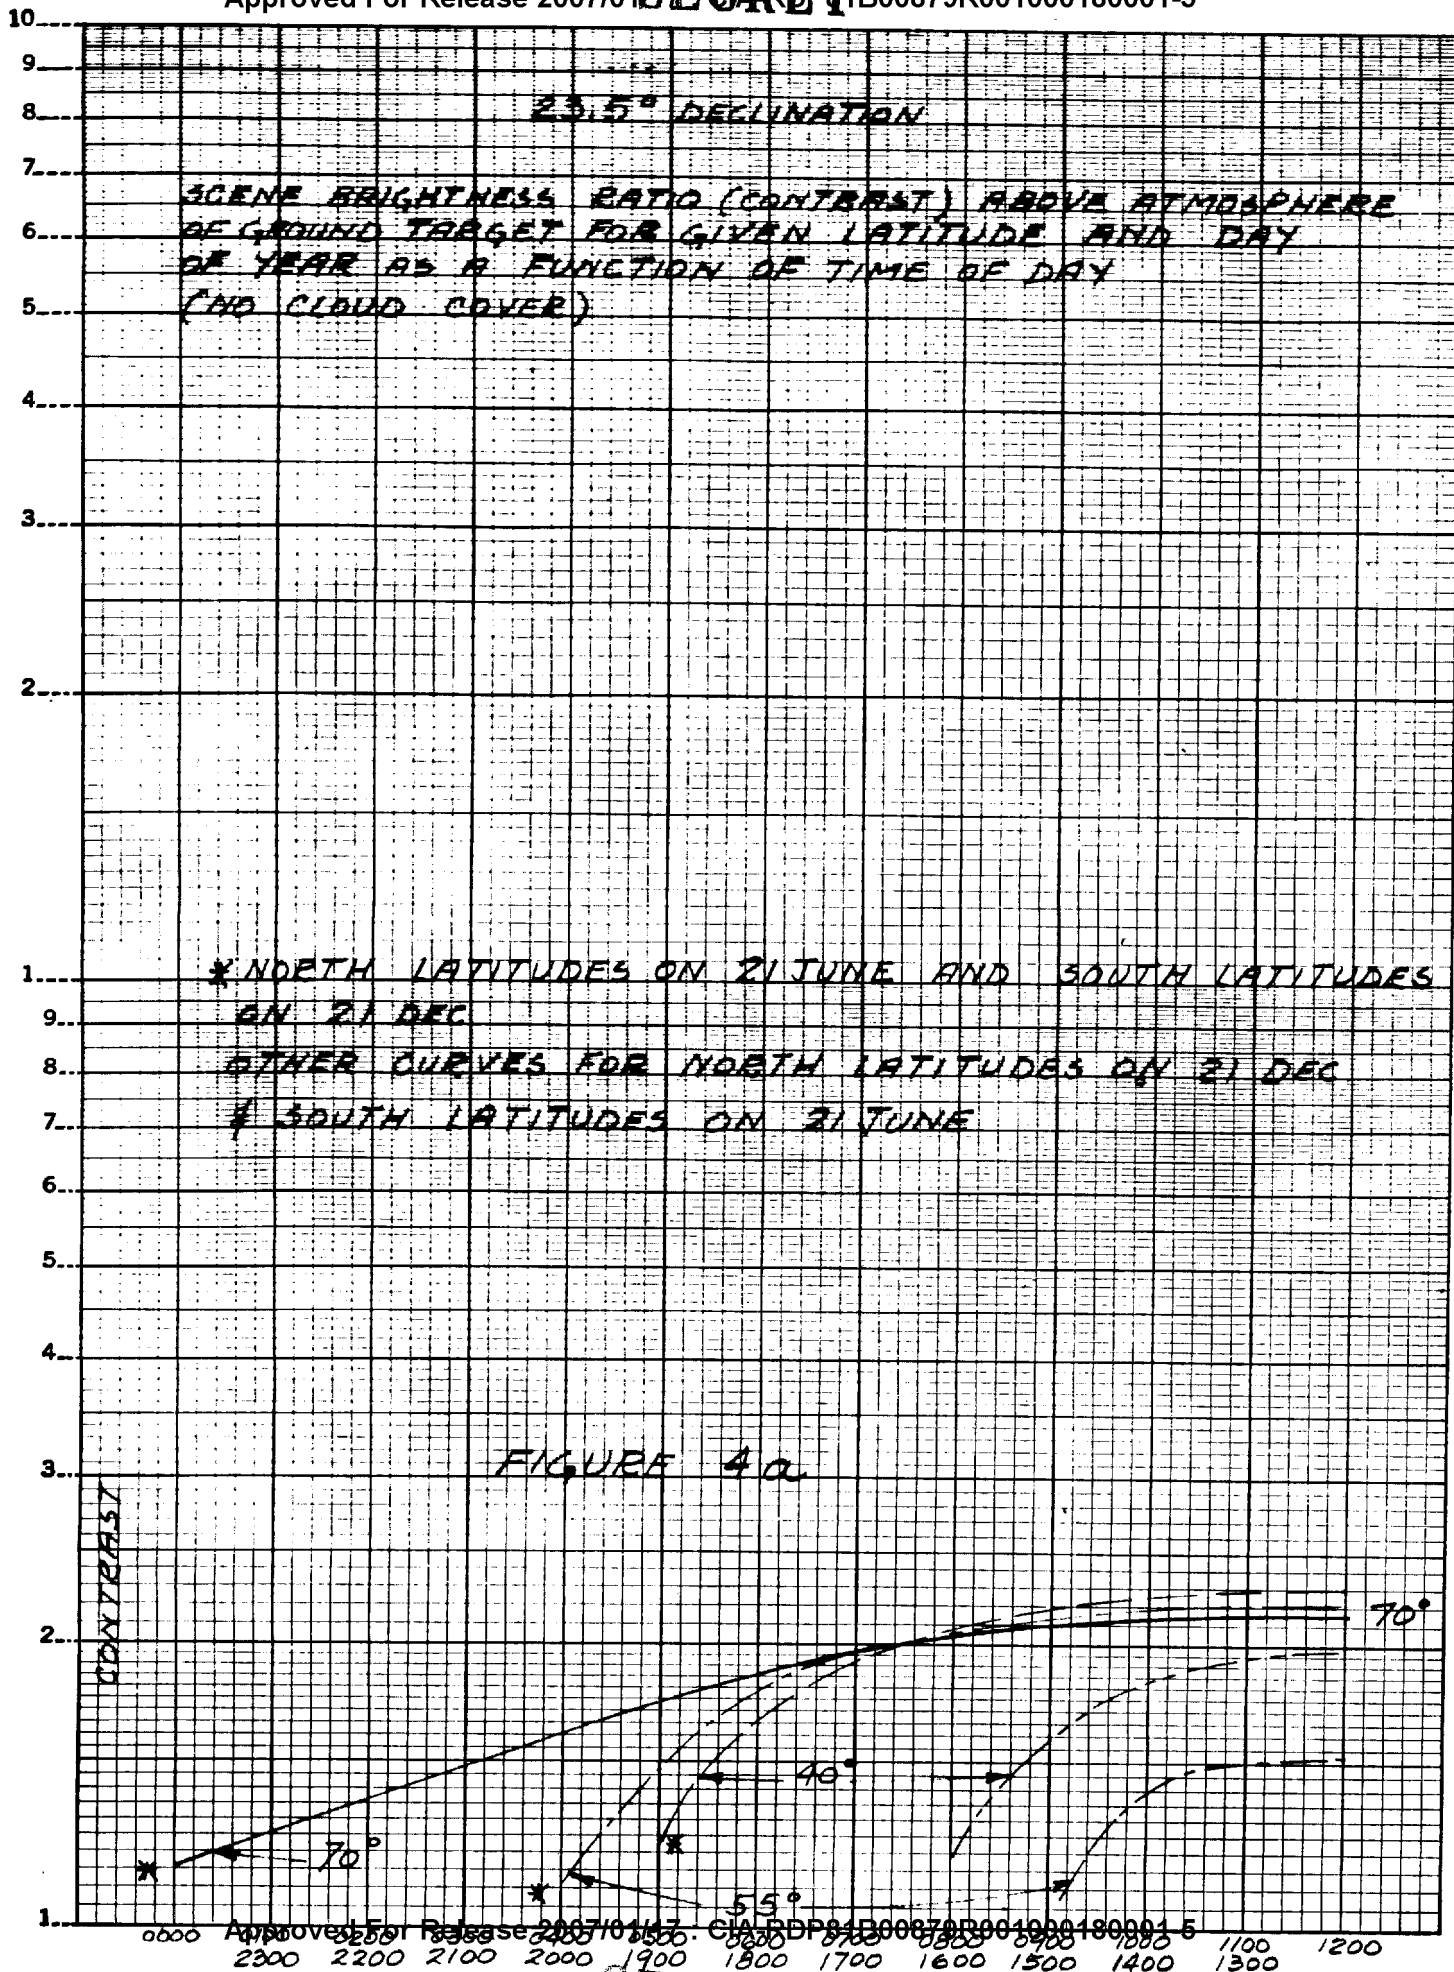 Approved For Release 2007/01
SECRET
1B00879R001000180001-5
10
9
8
23.5° DECLINATION
7
SCENE BRIGHTNESS RATIO (CONTRAST) ABOVE ATMOSPHERE
6
OF GROUND TARGET FOR GIVEN LATITUDE AND DAY
OF YEAR AS A FUNCTION OF TIME OF DAY
5
(NO CLOUD COVER)
4
3
2
1
* NORTH LATITUDES ON 21 JUNE AND SOUTH LATITUDES
9
ON 21 DEC
8
OTHER CURVES FOR NORTH LATITUDES ON 21 DEC
7
& SOUTH LATITUDES ON 21 JUNE
6
5
4
3
FIGURE 4a
CONTRAST
70°
2
40°
*
70°
*
*
55°
1
Approved For Release 2007/01/17 : CIA-RDP81B00879R001000180001-5
0000 0500 0600 0900 1000 1100 1200
2300 2200 2100 2000 1900 1800 1700 1600 1500 1400 1300